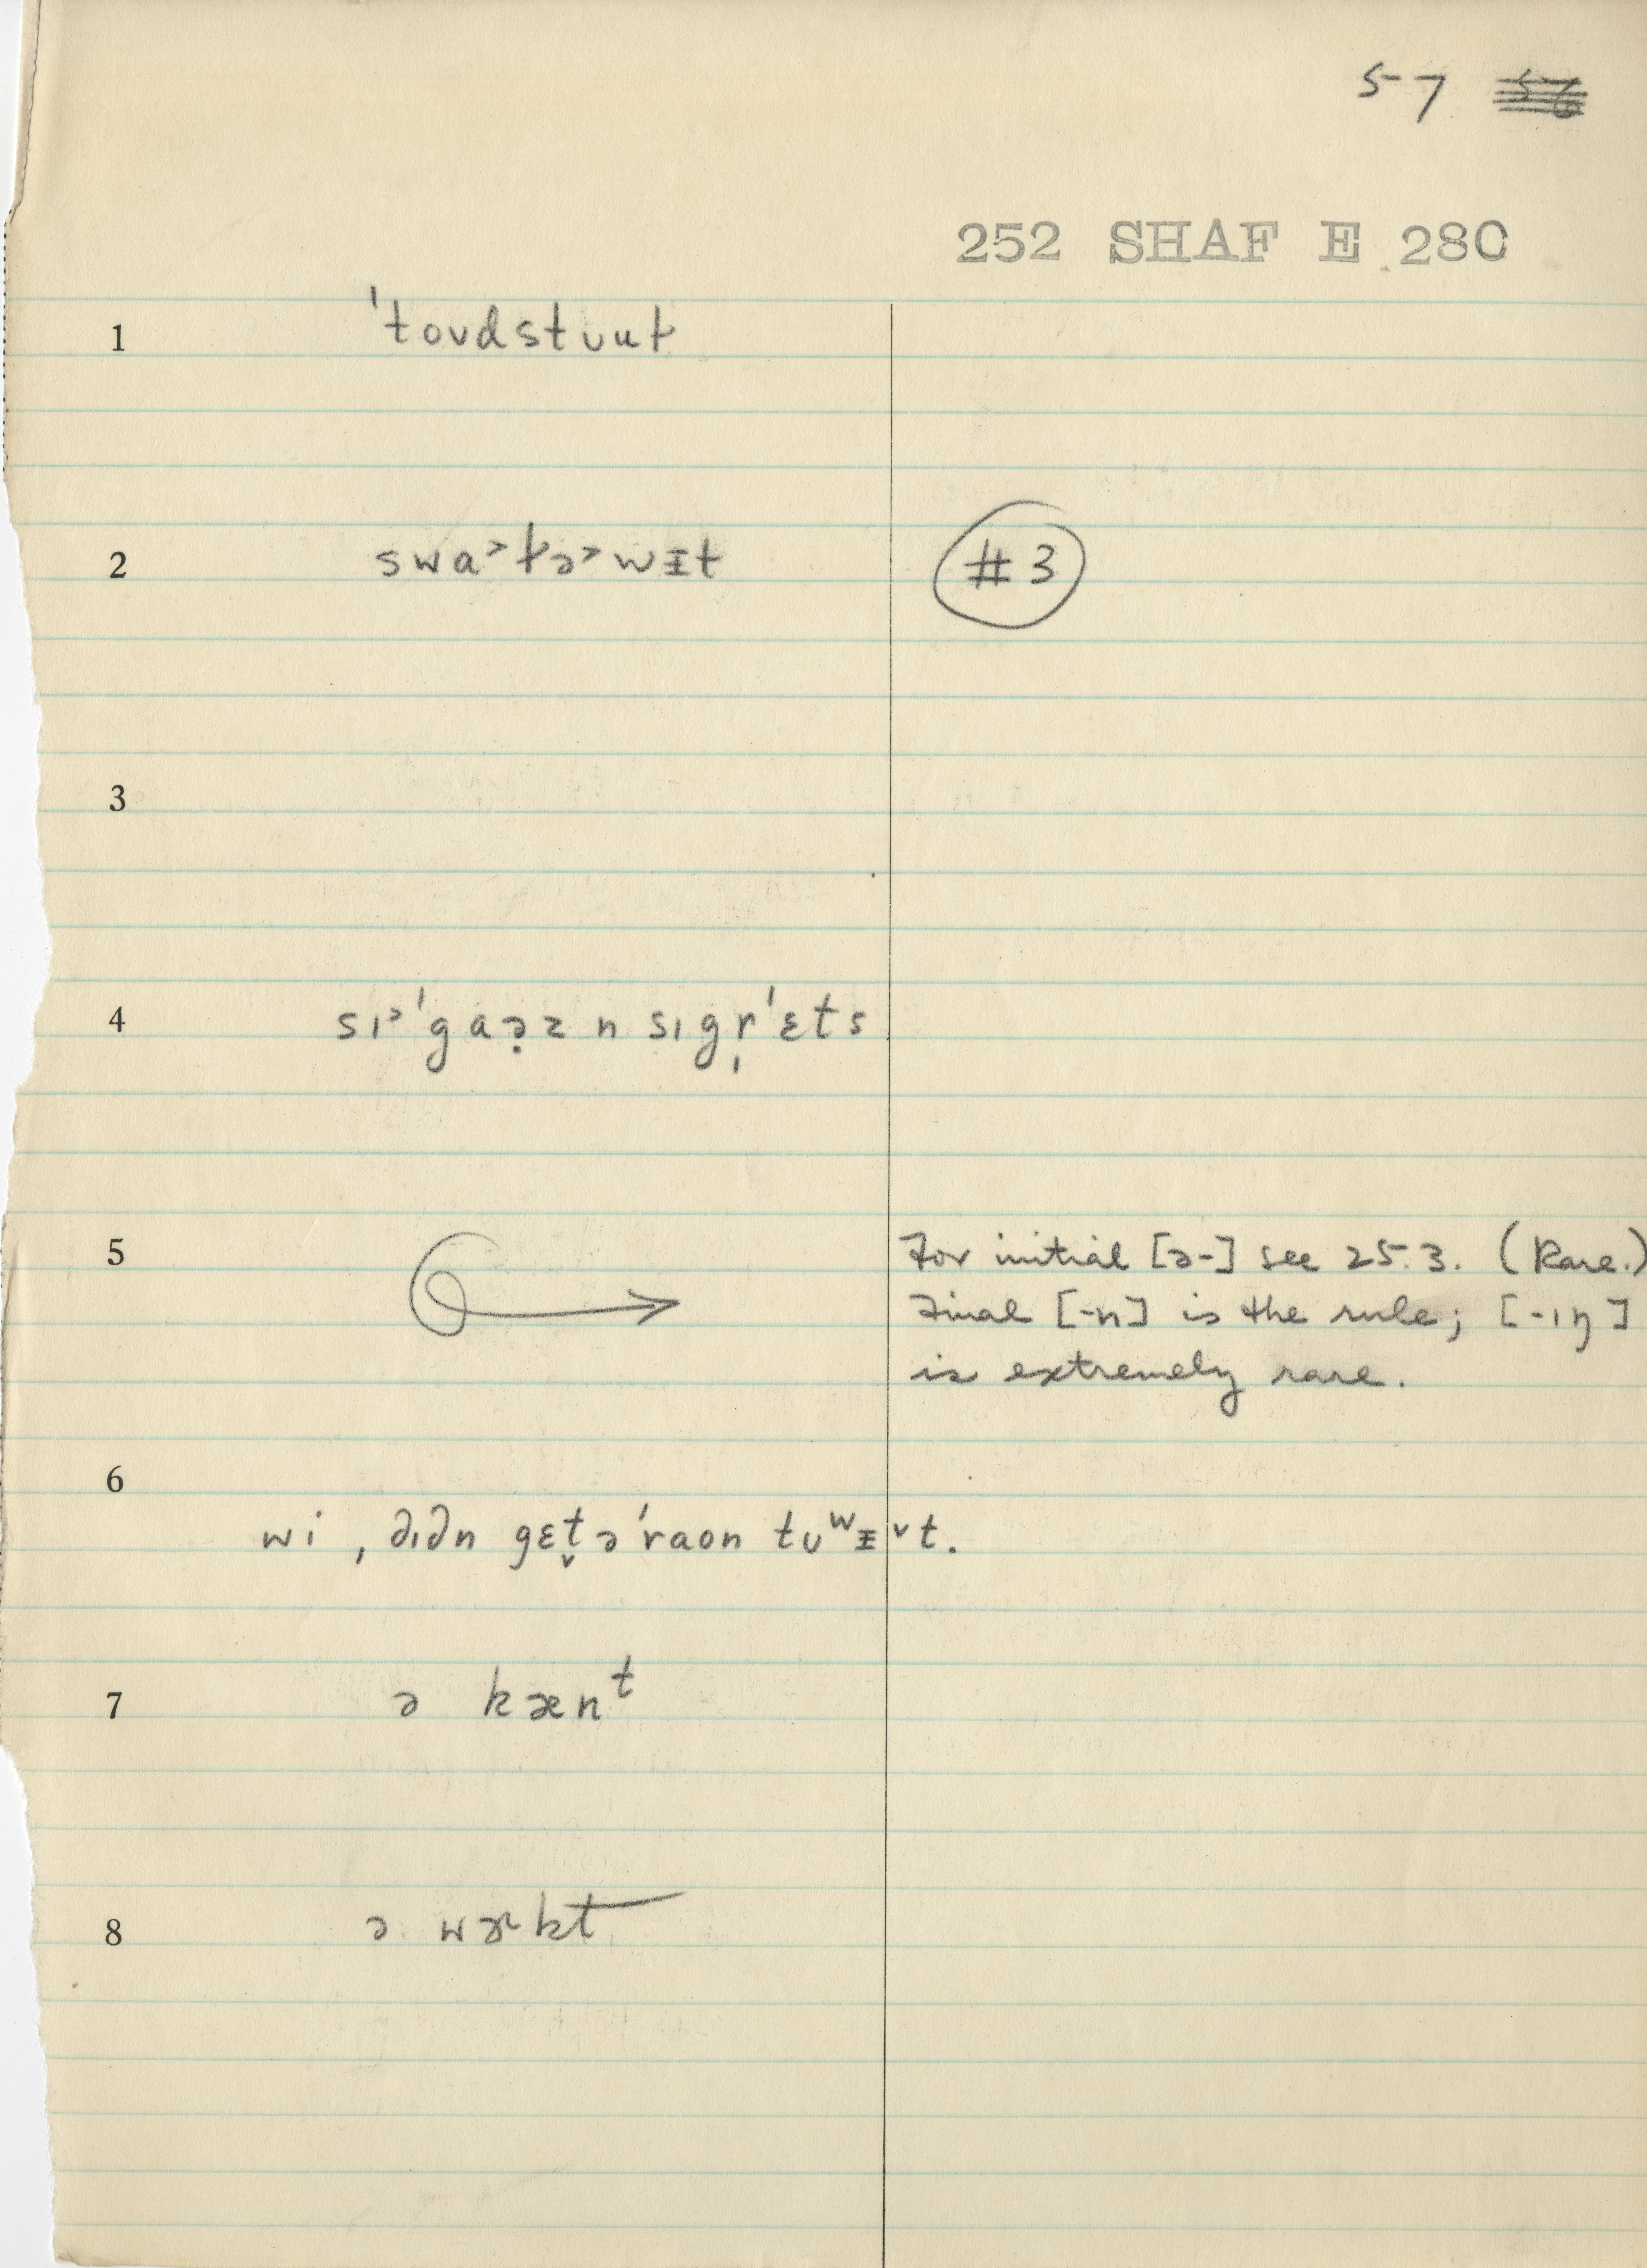 57
252 SHAF E 280
1 ˈtoʊdstuut
2 swa˃tə˃wᵻt #3
3
4 sɪ˃ˈgaə̣z n sɪgr̩ˈɛts
5 For initial [ə-] see 25.3. (Rare.)
Final [-n] is the rule; [-ɪŋ]
is extremely rare.
6
wi , dɪdn gɛt̬əˈraon tʊʷᵻ˅t.
7 ə kænᵗ
8 ə wɚkt